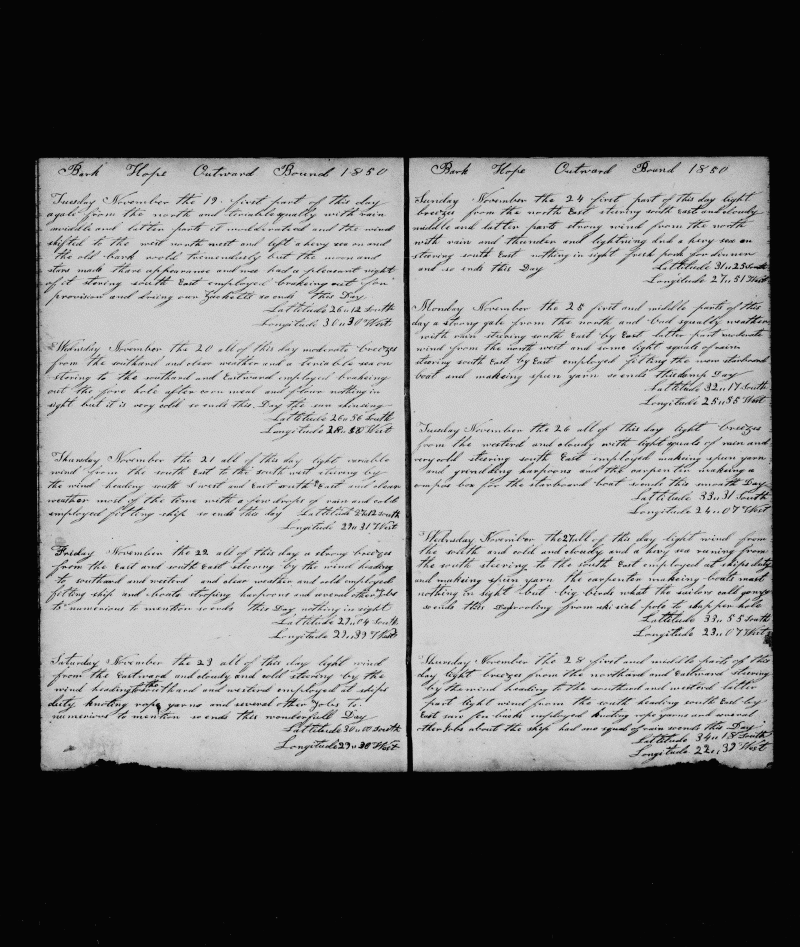 Bark Hope Outward Bound 1850
Tuesday November the 19 first part of this day
agale from the north and teriable squally with rain
middle and latter parts it moderated and the wind
shifted to the west north west and left a hevy sea on and
the old bark rould tremendiusly but the moon and
stars made thare appearance and wee had a pleasant night
of it stering south East employed brakeing out for
provision and driveing own so ends this Day
Lattitude 26 " 12 South
Longitude 30 " 30 West
Wedensday November the 20 all of this day moderate breezes
from the southard and clear weather and a teriable sea on
stering to the southard and Eastward employed brakeing
out the fore hole after corn meal and flour nothing in
sight but it is very cold so ends this Day the sun shineing
Lattitude 26 " 56 South
Longitude 28 " 58 West
Thursday November the 21 all of this day light variable
wind from the south East to the south west stering by
the wind heading south S west and East south East and clear
weather most of the time with a few drops of rain and cold
employed fitting ship so ends this day Lattitude 27 " 12 South
Longitude 29 " 31 West
Friday November the 22 all of this day a strong breezes
from the East and south East stering by the wind heading
to southard and westerd and clear weather and cold employed
fitting ship and boats stroping harpoons and severd other Jobs
to numerious to mention so ends this Day nothing in sight
Lattitude 29 " 04 South
Longitude 29 " 39 West
Saturday November the 23 all of this day light wind
from the Eastward and cloudy and cold stering by the
wind heading to the southard and westerd employed at ships
duty knoting rope yarns and several other Jobs to
numerious to mention so ends this wonderfull Day
Lattitude 30 " 10 South
Longitude 29 " 30 West
Bark Hope Outward Bound 1850
Sunday November the 24 first part of this day light
breezes from the north East stering south East and cloudy
middle and latter parts strong wind from the north
with rain and thunder and lightning and a hevy sea on
stearing south East nothing in sight fresh pork for dinner
and so ends this Day Lattitude 31 " 25 South
Longitude 27 " 51 West
Monday November the 25 first and middle parts of this
day a strong gale from the north and bad squally weather
with rain stering south East by East latter part moderate
wind from the north west and some light squals of rain
stering south East by East employed fitting the wore starboard
boat and makeing spun yarn so ends this damp Day
Lattitude 32 " 17 South
Longitude 25 " 55 West
Tuesday November the 26 all of this day light breezes
from the westerd and cloudy with light squals of rain and
very cold stering south East employed makeing spun yarn
and grindling harpoons and the carpenter makeing a
compas box for the starboard boat so ends this smooth Day
Lattitude 33 " 31 South
Longitude 24 " 07 West
Wedensday November the 27 all of this day light wind from
the south and cold and cloudy and a hevy sea runing from
the south stering to the south East employed at ships duty
and makeing spun yarn the carpenter makeing boats mast
nothing in sight but big birds what the sailors call goneys
so ends this Day rolong from ski sial pole to skipper hole
Lattitude 33 " 55 South
Longitude 23 " 07 West
Thursday November the 28 first and middle parts of this
day light breezes from the northard and Eastward stering
by the wind heading to the southard and westerd latter
part light wind from the south heading south East by
East fair fine baks employed knoting rope yarns and several
other Jobs about the ship had one squal of rain so ends this Day
Lattitude 34 " 18 South
Longitude 22 " 39 West